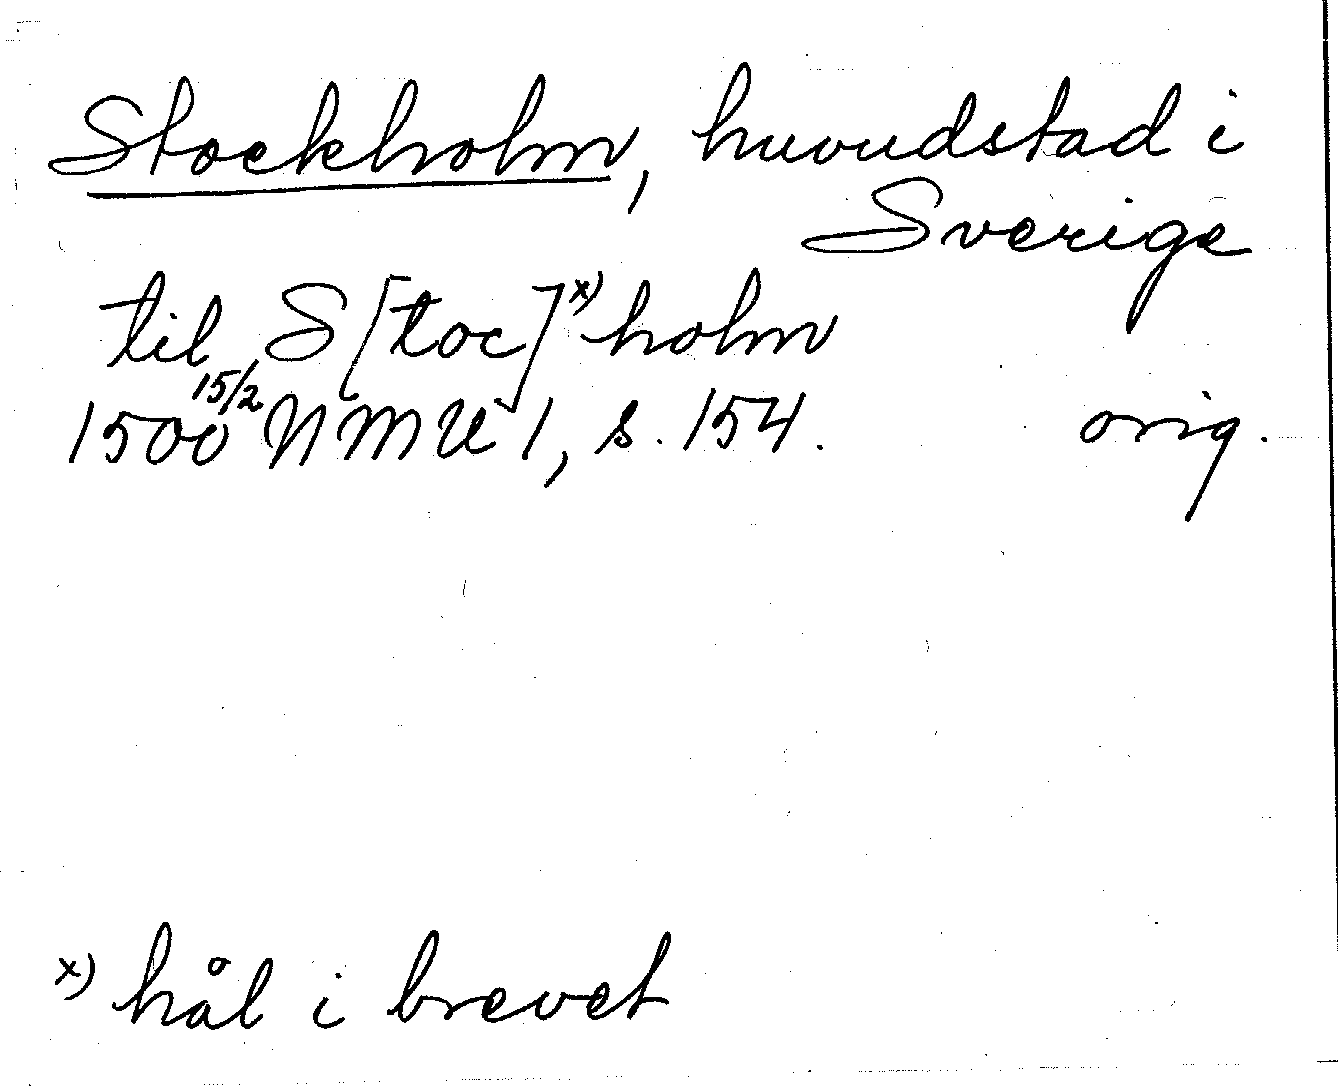 Stockholm, huvudstad i
Sverige
til S[toc]x) holm
1500 15/2 NMU 1, s. 154. orig.
x) hål i brevet